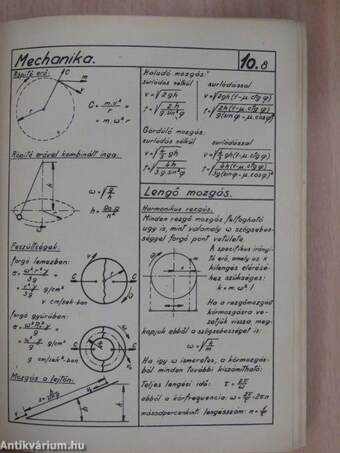 Mechanika.
10.8
Röpítő erő:
C = m.v²/r
= m.ω².r
Röpítő erővel kombinált inga.
ω = √(g/h)
Feszültségek:
forgó lemezben:
g/cm²
v cm/sek-ban
forgó gyűrűben:
g/cm²
g cm/sek²-ban
Mozgás a lejtőn:
Haladó mozgás:
surlódás nélkül
surlódással
v = √2gh
v = √2gh(1-μ.ctg φ)
Gördülő mozgás:
surlódás nélkül
surlódással
Lengő mozgás.
Harmonikus rezgés.
Minden rezgő mozgás felfogható
úgy is, mint valamely ω szögsebes-
séggel forgó pont vetülete.
A specifikus irányí-
tó erő, amely az x
kilengés eléréšé-
hez szükséges:
k = m.ω².1
Ha a rezgőmozgást
körmozgásra ve-
zetjük vissza, meg-
kapjuk ebből a szögsebességet is:
Ha így ω ismeretes, a körmozgás-
ból minden további kiszámítható:
Teljes lengési idő: τ = 2π/ω
ebből a körfrequencia: ω = 2π/τ = 2π n
másodpercenkint. lengésszám: n = 1/τ
Antikvárium.hu